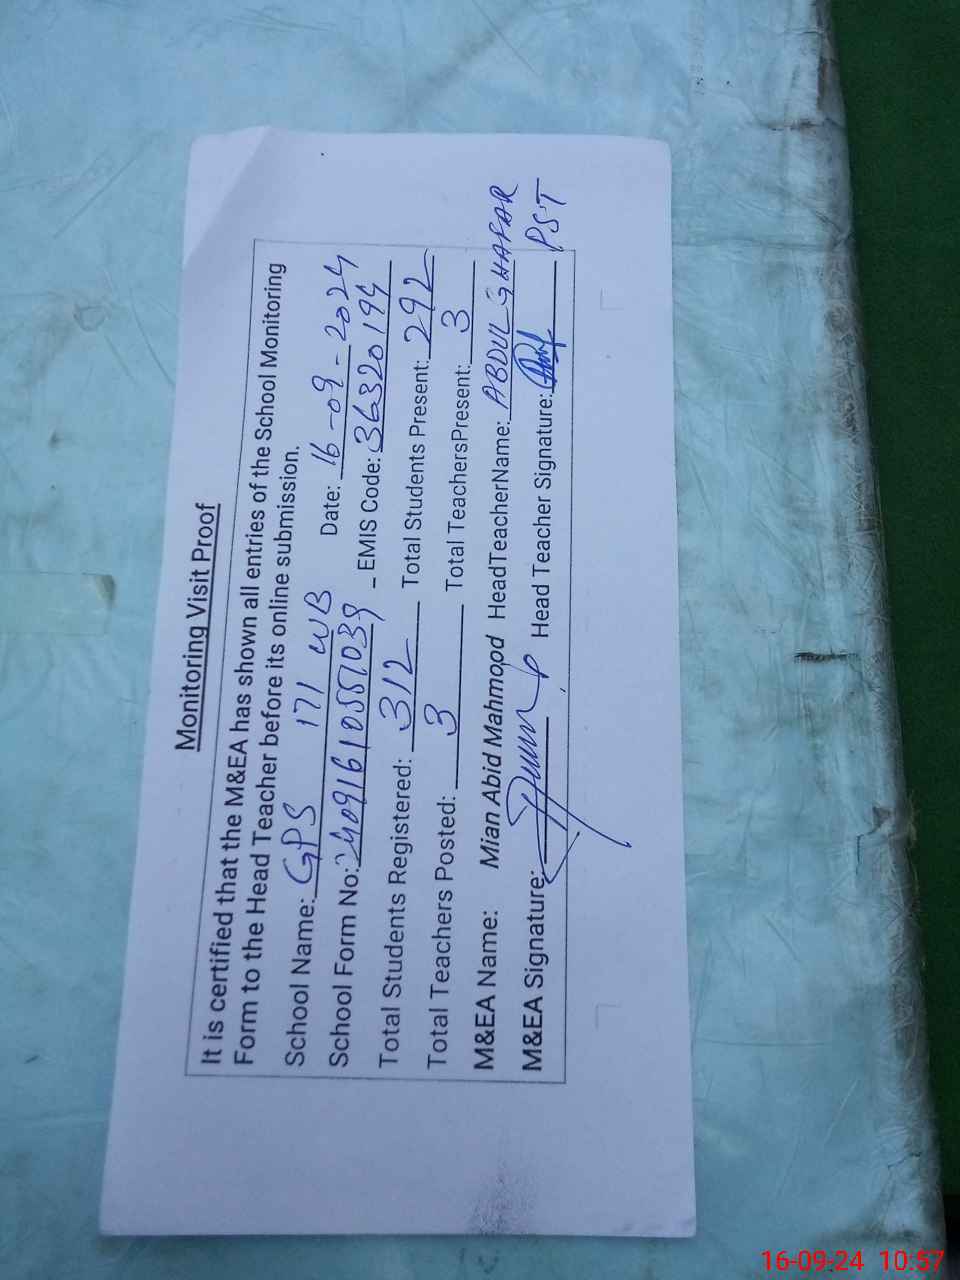 Monitoring Visit Proof
It is certified that the M&EA has shown all entries of the School Monitoring
Form to the Head Teacher before its online submission.
School Name: GPS 171 WB Date: 16-09-2024
School Form No: 24091610551039 EMIS Code: 36320194
Total Students Registered: 312 Total Students Present: 292
Total Teachers Posted: 3 Total TeachersPresent: 3
M&EA Name: Mian Abid Mahmood HeadTeacherName: ABDUL GHAFAR
M&EA Signature: Head Teacher Signature: PST
16-09-24 10:57